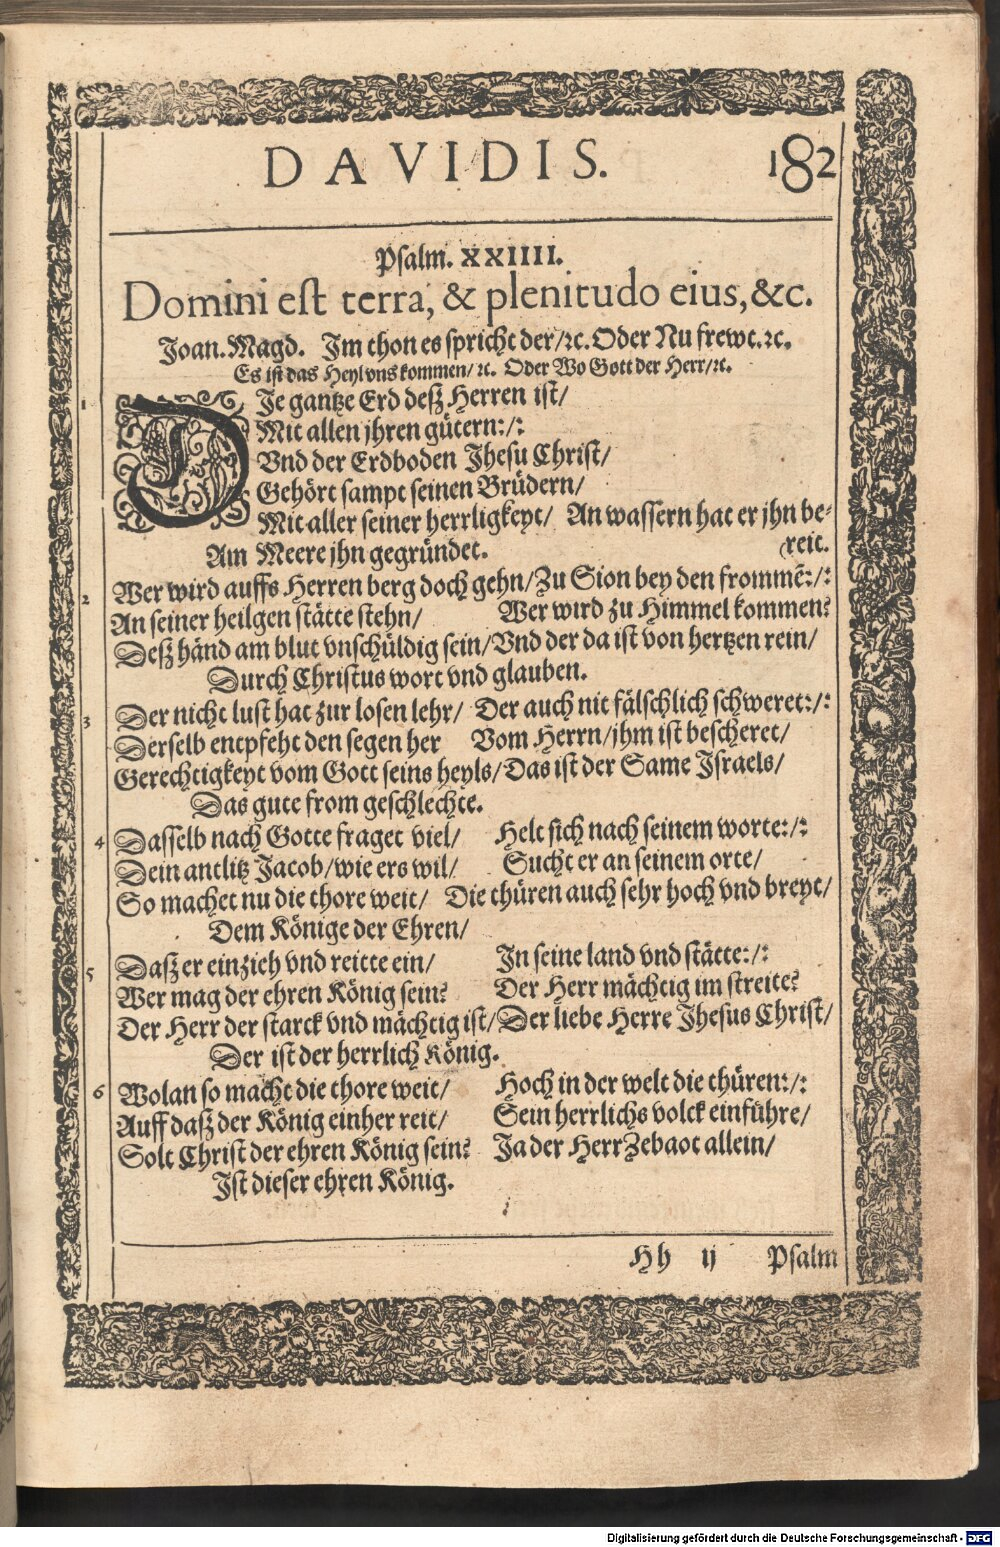 DAVIDIS. 182
Psalm. XXIIII.
Domini est terra, & plenitudo eius, &c.
Joan. Magd. Im thon es spricht der/ꝛc. Oder Nu frewt.ꝛc.
Es ist das Heyl vns kommen/ ꝛc. Oder Wo Gott der Herr/ꝛc.
1 DJe gantze Erd deß Herren ist/
Mit allen jhren gütern:/:
Vnd der Erdboden Jhesu Christ/
Gehört sampt seinen Brüdern/
Mit aller seiner herrligkeyt/ An wassern hat er jhn be-
Am Meere jhn gegründet. (reit.
2 Wer wird auffs Herren berg doch gehn/ Zu Sion bey den frommẽ:/:
An seiner heilgen stätte stehn/ Wer wird zu Himmel kommen?
Deß händ am blut vnschüldig sein/ Vnd der da ist von hertzen rein/
Durch Christus wort vnd glauben.
3 Der nicht lust hat zur losen lehr/ Der auch nit fälschlich schweret:/:
Derselb entpfeht den segen her Vom Herrn/ jhm ist bescheret/
Gerechtigkeyt vom Gott seins heyls/ Das ist der Same Israels/
Das gute from geschlechte.
4 Dasselb nach Gotte fraget viel/ Helt sich nach seinem worte:/:
Dein antlitz Jacob/ wie ers wil/ Sucht er an seinem orte/
So machet nu die thore weit/ Die thüren auch sehr hoch vnd breyt/
Dem Könige der Ehren/
5 Daß er einzieh vnd reitte ein/ In seine land vnd stätte:/:
Wer mag der ehren König sein? Der Herr mächtig im streite?
Der Herr der starck vnd mächtig ist/ Der liebe Herre Jhesus Christ/
Der ist der herrlich König.
6 Wolan so macht die thore weit/ Hoch in der welt die thüren:/:
Auff daß der König einher reit/ Sein herrlichs volck einführe/
Solt Christ der ehren König sein? Ja der Herr Zebaot allein/
Ist dieser ehren König.
Hh ij Psalm
Digitalisierung gefördert durch die Deutsche Forschungsgemeinschaft - DFG